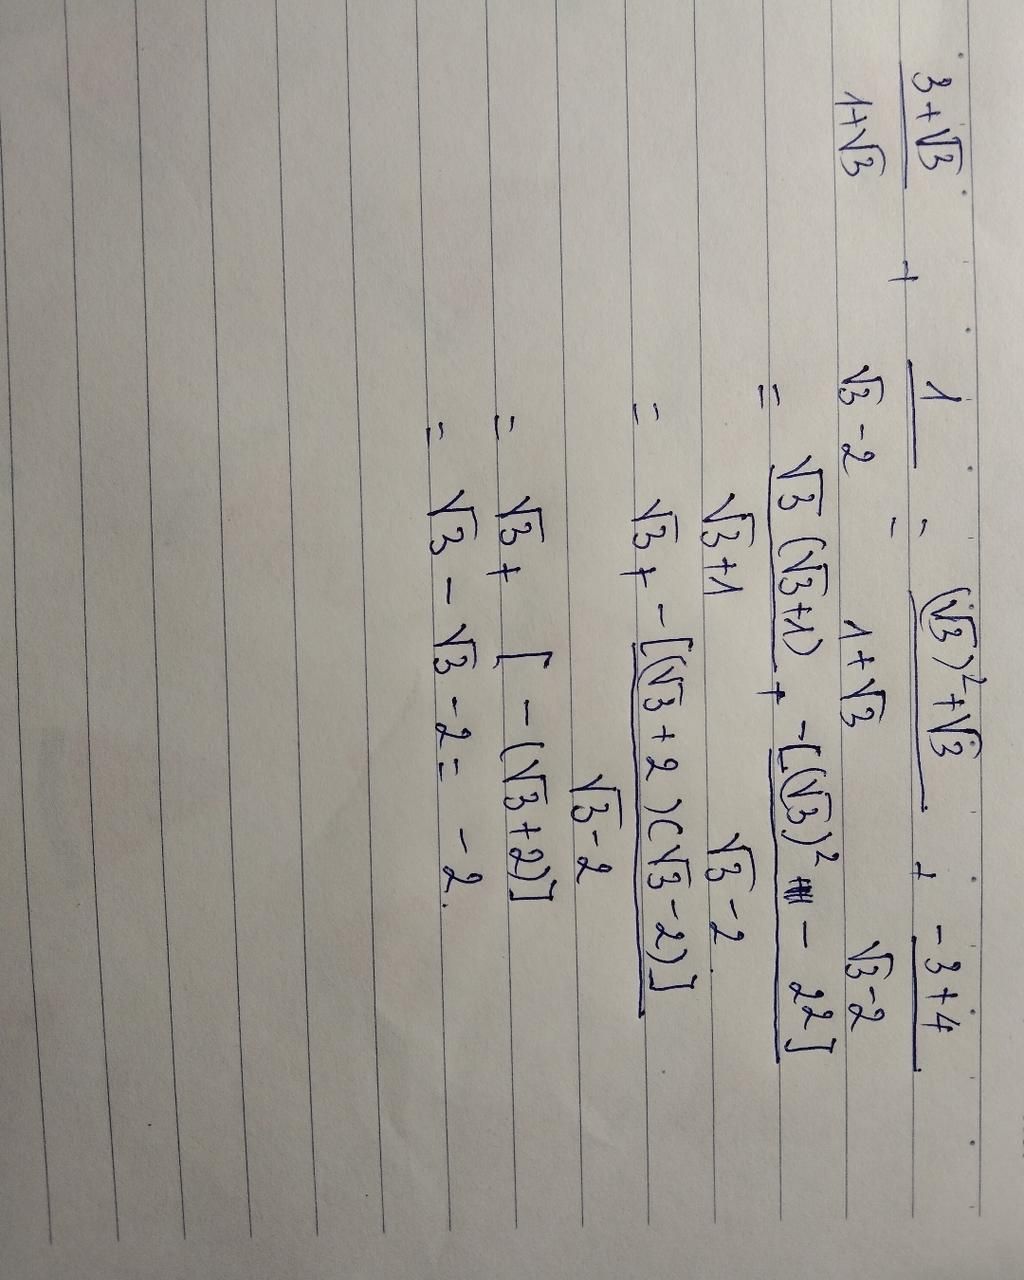 3+√3 / 1+√3 + 1 / √3-2 = (√3)²+√3 / 1+√3 + -3+4 / √3-2
= √3(√3+1) / √3+1 + -[(√3)² - 2²] / √3-2
= √3 + -[(√3+2)(√3-2)] / √3-2
= √3 + [-(√3+2)]
= √3 - √3 -2 = -2.